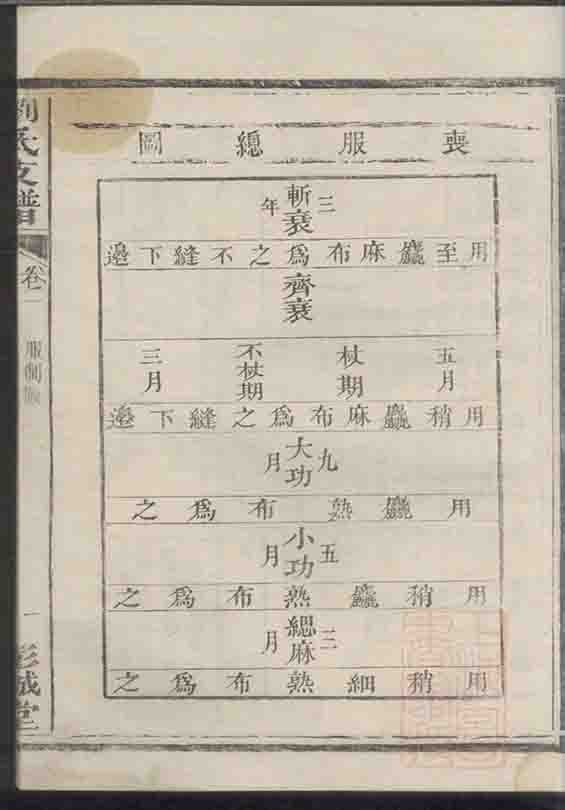 喪服總圖
斬衰
三年
用至麤麻布為之不縫下邊
齊衰
五月
杖期
不杖期
三月
用稍麤麻布為之縫下邊
大功
九月
用麤熟布為之
小功
五月
用稍麤熟布為之
緦麻
三月
用稍細熟布為之
劉氏支譜
卷一
服制
一
彭城堂